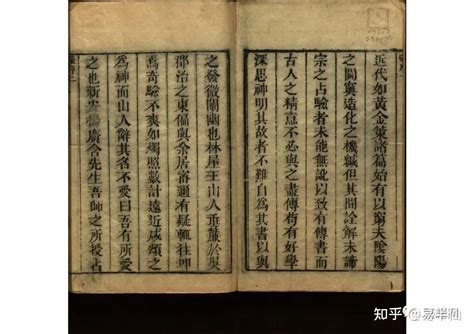 近代如黃金策諸篇始有以窮天陰陽
之閫奧造化之機緘但其間詮解未諦
宗之占驗者未能無訛以致有傳書而
古人之精意不必與之盡傳苟有好學
深思神明其故者不自為其書以與
之發微闡幽也林屋王山人垂簾於吳
郡治之東偏與余居密邇有疑輒往叩
焉奇驗不爽如燭照數計遠近咸頌之
為神而山人辭其名不受曰吾
之也新安楊廣含先生吾師之所授占
知乎 @易半仙